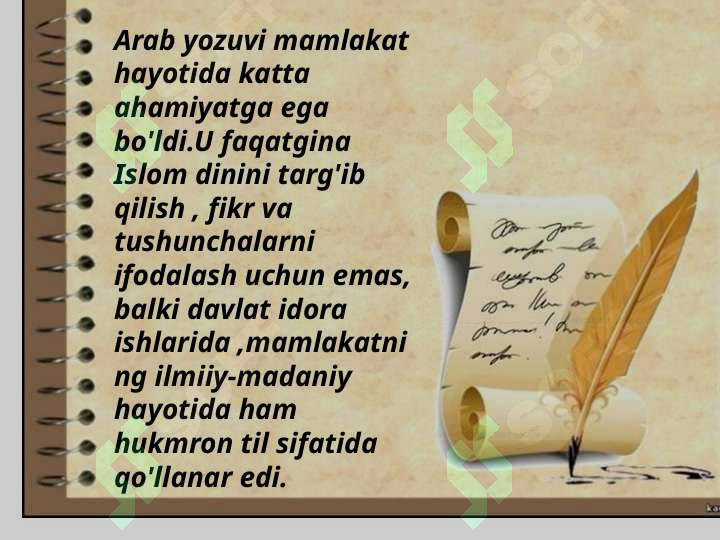 Arab yozuvi mamlakat
hayotida katta
ahamiyatga ega
bo'ldi.U faqatgina
Islom dinini targ'ib
qilish , fikr va
tushunchalarni
ifodalash uchun emas,
balki davlat idora
ishlarida ,mamlakatni
ng ilmiiy-madaniy
hayotida ham
hukmron til sifatida
qo'llanar edi.